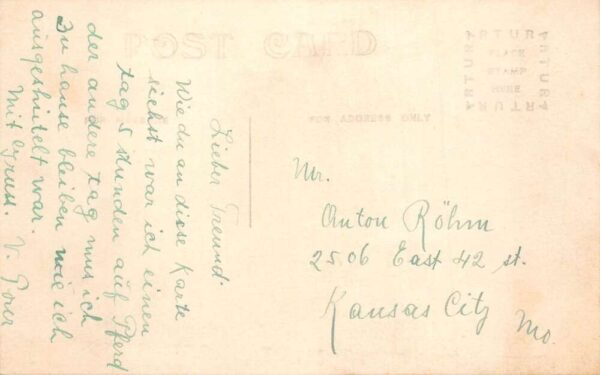 POST CARD
ARTURA
PLACE
STAMP
HERE
ARTURA
ARTURA
ARTURA
FOR ADDRESS ONLY
Lieber Freund.
Wie du an diese Karte
siehst war ich einen
tag 5 stunden auf Pferd
der andere tag mus ich
zu hause bleiben wie ich
ausgeshütelt war.
Mit Gruss. V.
Mr.
Anton Röhm
2506 East 42 st.
Kansas City Mo.